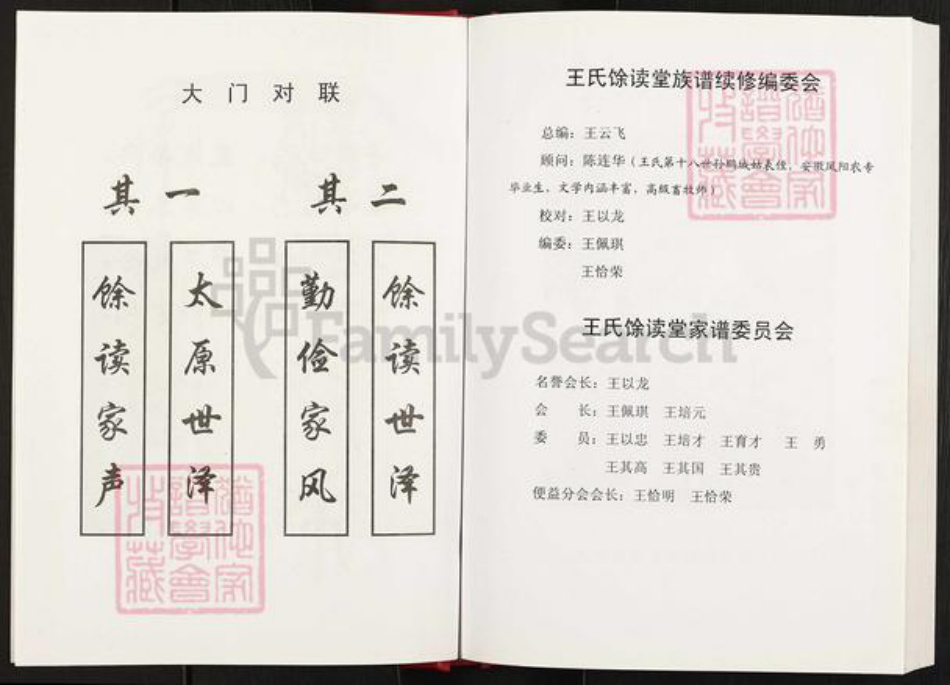 大门对联
其一
太原世泽
馀读家声
其二
馀读世泽
勤俭家风
王氏馀读堂族谱续修编委会
总编：王云飞
顾问：陈连华（王氏第十八世孙鹏城姑表侄，安徽凤阳农专
毕业生，文学内涵丰富，高级畜牧师）
校对：王以龙
编委：王佩琪
王恰荣
王氏馀读堂家谱委员会
名誉会长：王以龙
会　　长：王佩琪　王培元
委　　员：王以忠　王培才　王育才　王　勇
王其高　王其国　王其贵
便益分会会长：王恰明　王恰荣
FamilySearch